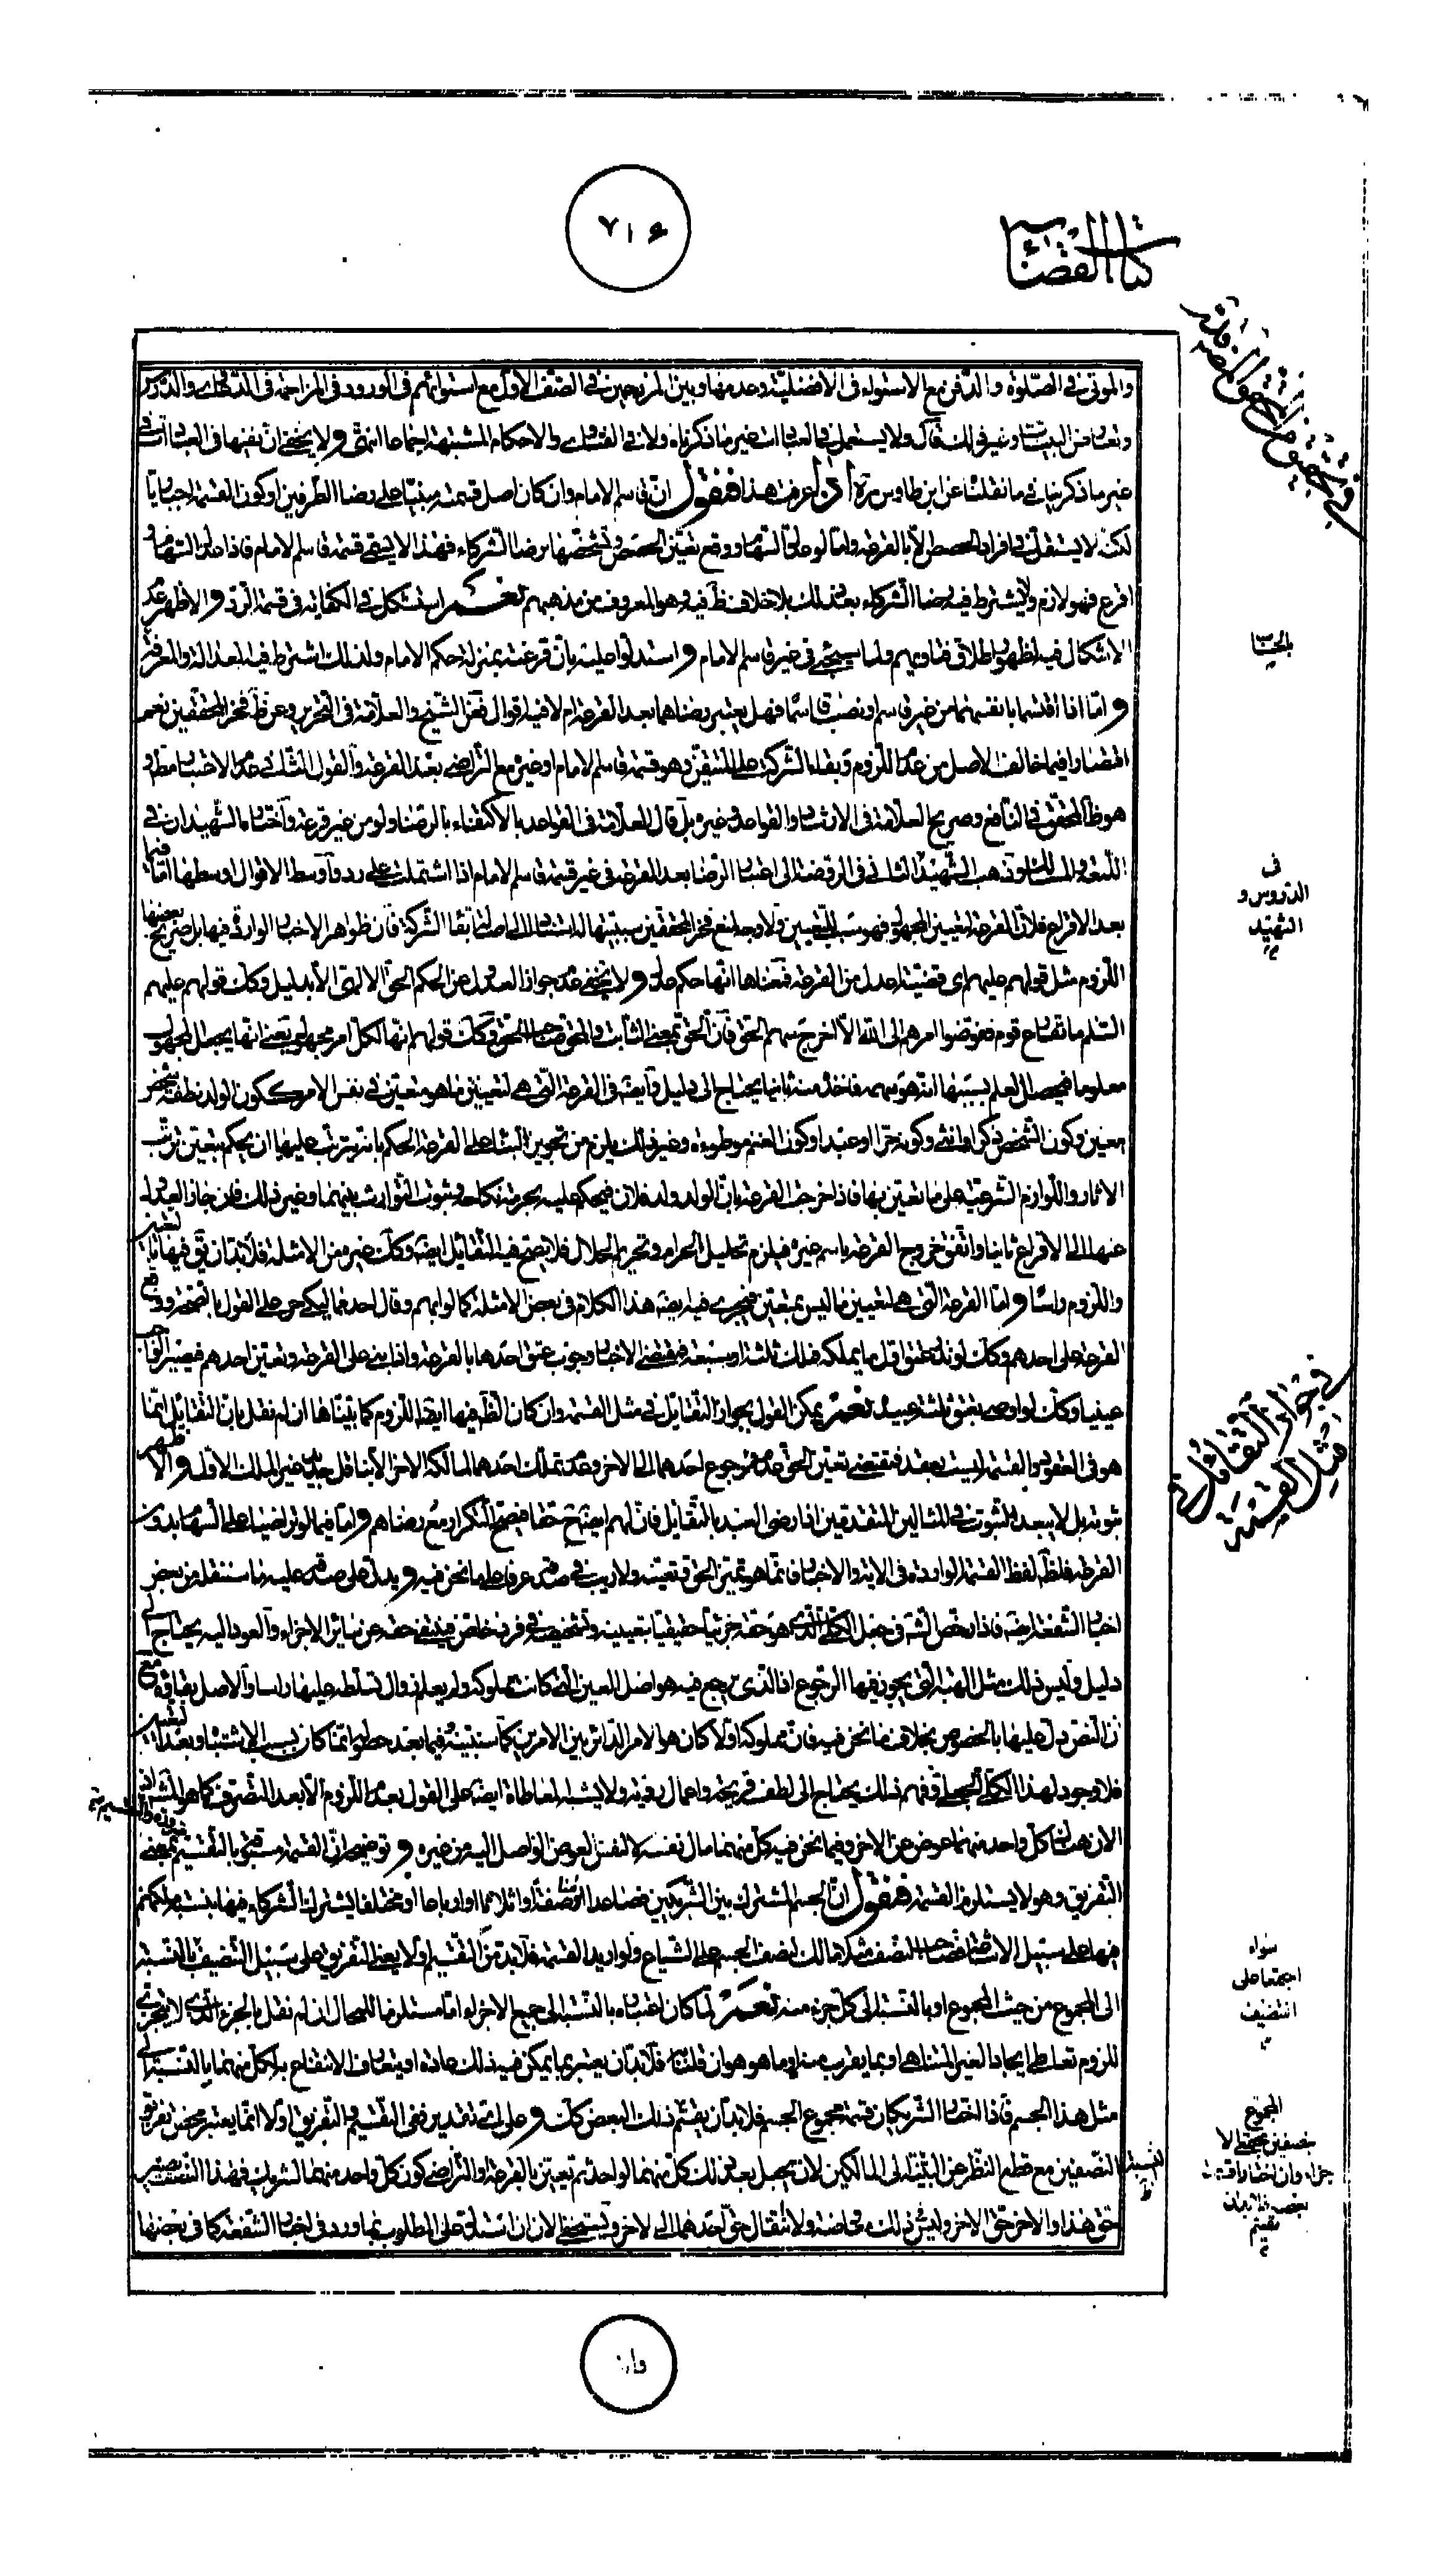 ٧١۶
كتاب القضاء
والموتى في الصلوة والدفن مع الاستواء في الافضلية وعدمها وبين المزدحمين في الصف الاول مع استوائهم في الورود وفي المزاحمة في الدعاوى والدروس
وتعارض البينات وغير ذلك قال ولا يستعمل في العبادات في غير ما ذكرناه ولا في الفتاوى والاحكام المشتبهة اجماعا انتهى ولا يخفى ان نفيها في العبادات في
غير ما ذكر ينافي ما نقلناه عن ابن طاوس ره اذا عرفت هذا فنقول ان قاسم الامام وان كان اصل قسمته مبنيا على رضا الطرفين او كون القسمة اجباريا
لكنه لا يستقل في افراد الحصص الا بالقرعة واما لو عدل السهام ووقع تعيين الحصص وتشخصها برضا الشركاء فهذا لا يسمى قسمة قاسم الامام فاذا عدل السهام و
اقرع فهو لازم ولا يشترط فيه رضا الشركاء بعد ذلك بلا خلاف ظ فيه وهو المعروف من مذهبهم نعم استشكل في الكفاية في قسمة الرد والاظهر عدم
الاشكال فيه لظهور اطلاق فتاويهم ولما سيجئ في غير قاسم الامام واستدلوا عليه بان قرعته بمنزلة حكم الامام ولذلك اشترط فيه العدالة والمعرفة
واما اذا اقتسما بانفسهما من غير قاسم او نصبا قاسما فهل يعتبر رضاهما بعد القرعة ام لا فيه اقوال فعن الشيخ والعلامة في التحرير وعن ظ فخر المحققين نعم
اقتصارا فيما خالف الاصل من عدم اللزوم وبقاء الشركة على المتيقن وهو قسمة قاسم الامام او غيره مع التراضي بعد القرعة والقول الثاني عدم الاعتبار مطلقا و
هو ظ المحقق في النافع وصريح العلامة في الارشاد والقواعد وغيره بل قال العلامة في القواعد بالاكتفاء بالرضا ولو من غير قرعة واختاره الشهيدان في
اللمعة والمسالك وذهب الشهيد الثاني في الروضة الى اعتبار الرضا بعد القرعة في غير قسمة قاسم الامام اذا اشتملت على رد واوسط الاقوال اوسطها اما فيما
بعد الاقراع فلان القرعة لتعيين المجهول فهو سبب للتعيين ولا وجه لمنع فخر المحققين سببيتها له استنادا الى اصالة بقاء الشركة فان ظواهر الاخبار الواردة فيها بل صريح بعضها
اللزوم مثل قولهم عليهم اي قضية اعدل من القرعة فمعناها انها حكم عدل ولا يخفى عدم جواز العدول عن الحكم الحق الالهي الا بدليل وكذلك قولهم عليهم
السلم ما تقارع قوم ففوضوا امرهم الى الله الا اخرج سهم المحق فان الحق بمعنى الثابت والمحق صاحب الحق وكذلك قولهم انها لكل امر مجهول يعني انها يجعل المجهول
معلوما فيحصل العلم بسببها انه هو سهمه فاخذه منه ثانيا يحتاج الى دليل وايضا في القرعة التي هي لتعيين ما هو متعين في نفس الامر ككون الولد نطفة شخص
معين وكون الشخص ذكرا او انثى وكونه حرا او عبدا وكون الغنم موطوءة وغير ذلك يلزم من تجويز البناء على القرعة الحكم بانه يترتب عليها ان يحكم بتعين ترتب
الاثار واللوازم الشرعية على ما تعين بها فاذا خرجت القرعة بان الولد ولد فلان فيحكم عليه بحرمة نكاحه وثبوت التوارث بينهما وغير ذلك فلو جاز العدول
عنها الى الاقراع ثانيا واتفق خروج القرعة باسم غيره فيلزم تحليل الحرام وتحريم الحلال فلا يصح فيه التقائل ايضا وكذلك غيره من الامثلة فلا بد ان نقول فيها بالتعيين
واللزوم راسا واما القرعة التي هي لتعيين ما ليس بمتعين فيجرى فيه ايضا هذا الكلام في بعض الامثلة كما لو ابهم وقال احد مماليكي حر على القول بالصحة ووقع
القرعة على احدهم وكذلك لو نذر عتق اول ما يملكه فملك ثلثة او سبعة فمقتضى الاخبار وجوب عتق احدها بالقرعة واذا بنى على القرعة وتعين احدهم فيصير الواجب
عينيا وكذلك لو اوصى بعتق ثلث عبيده نعم يمكن القول بجواز التقائل في مثل القسمة وان كان الظ فيها ايضا اللزوم كما بيناها ان لم نقل بان التقائل انما
هو في العقود والقسمة ليست بعقد فمقتضى تعيين الحق عدم رجوع احدهما الى الاخر وعدم تملك احدهما لما ملكه الاخر الا بناقل جديد غير الملك الاول والاظهر
ثبوته بل لا يبعد الثبوت في المثالين المتقدمين اذا رضى العبيد بالتقائل فان لهم ايضا حقا فيصح التكرار مع رضاهم واما فيما لو تراضيا على السهام بدون
القرعة فلظ لفظ القسمة الواردة في الاية والاخبار فانما هو تميز الحق وتعينه ولا ريب في صدقه عرفا على ما نحن فيه ويدل على صدقه عليه ما سننقله من بعض
اخبار الشفعة ايضا فاذا رخص الشه في جعل الكلي الذي هو حقه جزئيا حقيقيا بتعيينه وتشخيصه في فرد خاص فينتفي حقه عن سائر الاجزاء والعود اليه يحتاج الى
دليل وليس ذلك مثل الهبة التي يجوز فيها الرجوع اذ الذي يرجع فيه هو اصل العين التي كانت مملوكة ولم يعلم زوال تسلطه عليها راسا والاصل بقاؤه مع
ان النص دل عليها بالخصوص بخلاف ما نحن فيه فان مملوكه اولا كان هو الامر الدائر بين الامرين كما سنبينه فيما بعد
فلا وجود لهذا الكلي وفهم ذلك يحتاج الى لطف قريحة واعمال روية ولا يشبه المعاطاة ايضا على القول بعدم اللزوم الا بعد التصرف كما هو المشهور
الان هناك كل واحد منهما عوض عن الاخر وفيما نحن فيه كل منهما مال نفسه لا نفس العوض الواصل اليه من غيره وتوضيحه ان القسمة مسبوقة بالتقسيم بمعنى
التفريق وهو لا يستلزم القسمة فنقول ان الجسم المشترك بين الشريكين فصاعدا اما مناصفة او اثلاثا او ارباعا او مختلفا يشترك الشركاء فيها بنسبة ملكهم
فيها على سبيل الاشاعة فصاحب النصف مثلا مالك لنصف الجسم على الشياع ولو اريد القسمة فلا بد من التقسيم اولا يعني التفريق على سبيل التنصيف بالنسبة
الى المجموع من حيث المجموع او بالنسبة الى كل جزء منه نعم لما كان اعتباره بالنسبة الى جميع الاجزاء مستلزما للمحال ان لم نقل بالجزء الذي لا يتجزى
للزوم تعلق الايجاد الغير المتناهي او بما يقرب منه لو ما هو هو ان قلنا به فلا بد ان يعتبر بما يمكن فيه ذلك عادة او يتعارف الانتفاع به لكل منهما بالنسبة الى
مثل هذا الجسم فاذا اختار الشريكان قسمة مجموع الجسم فلا بد ان يقسم ذلك البعض كذلك وعلى اي تقدير ففي التقسيم والتفريق اولا انما يعتبر محض تفريق
النصفين مع قطع النظر عن النسبة الى المالكين لان يحصل بعد ذلك كل منهما لواحد ثم تعيين بالقرعة او التراضي كون كل واحد منهما لشريك فهذا النصف يصير
حق هذا والاخر حق الاخر وليس ذلك معاوضة ولا انتقال حق احدهما الى الاخر ويتضح الان ان استدل على المطلوب بما ورد في اخبار الشفعة كما في بعضها
في الدروس و
الشهيد
في جواز التقائل في
مثل القسمة
سواء
اجتمعا على
التنصيف
المجموع
وان